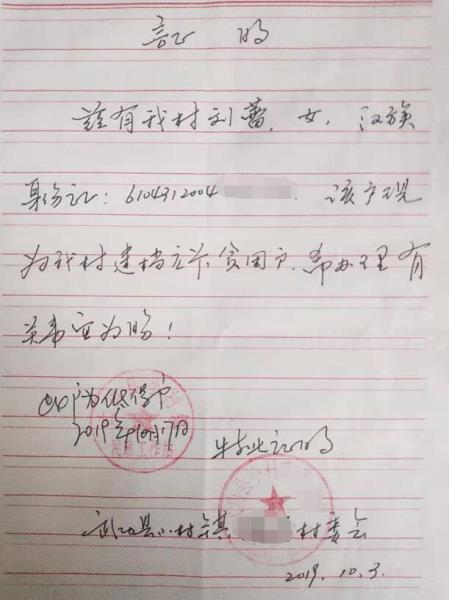 证 明
兹有我村刘蕾，女，汉族
身份证：6104312004 该户现
为我村建档立卡贫困户，希办理有
关事宜为盼！
此户为低保户
2019年10月17日
特此证明
武功县小村镇 村委会
2019.10.3.